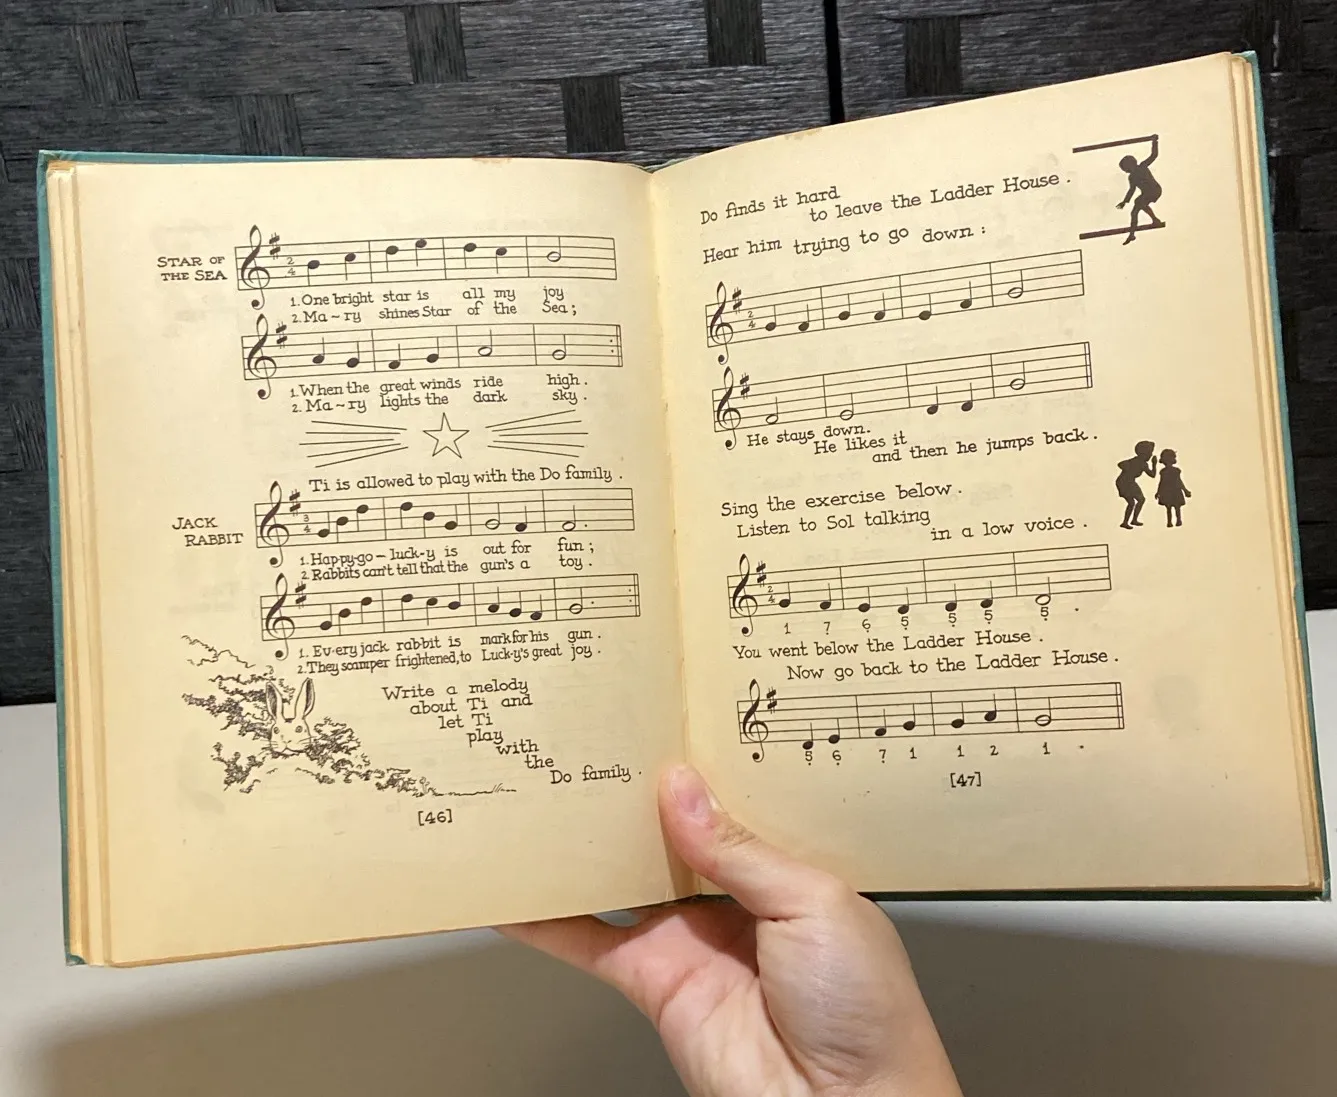 STAR OF
THE SEA
2
4
1. One bright star is all my joy
2. Ma~ry shines Star of the Sea;
1. When the great winds ride high.
2. Ma~ry lights the dark sky.
Ti is allowed to play with the Do family.
JACK
RABBIT
3
4
1. Hap-py-go-luck-y is out for fun;
2. Rabbits can't tell that the gun's a toy.
1. Ev-ery jack rab-bit is mark for his gun.
2. They scamper frightened, to Luck-y's great joy.
Write a melody
about Ti and
let Ti
play
with
the
Do family.
[46]
Do finds it hard
to leave the Ladder House.
Hear him trying to go down:
2
4
He stays down.
He likes it
and then he jumps back.
Sing the exercise below.
Listen to Sol talking
in a low voice.
2
4
1 7 6 5 5 5 5 .
You went below the Ladder House.
Now go back to the Ladder House.
5 6 7 1 1 2 1 .
[47]